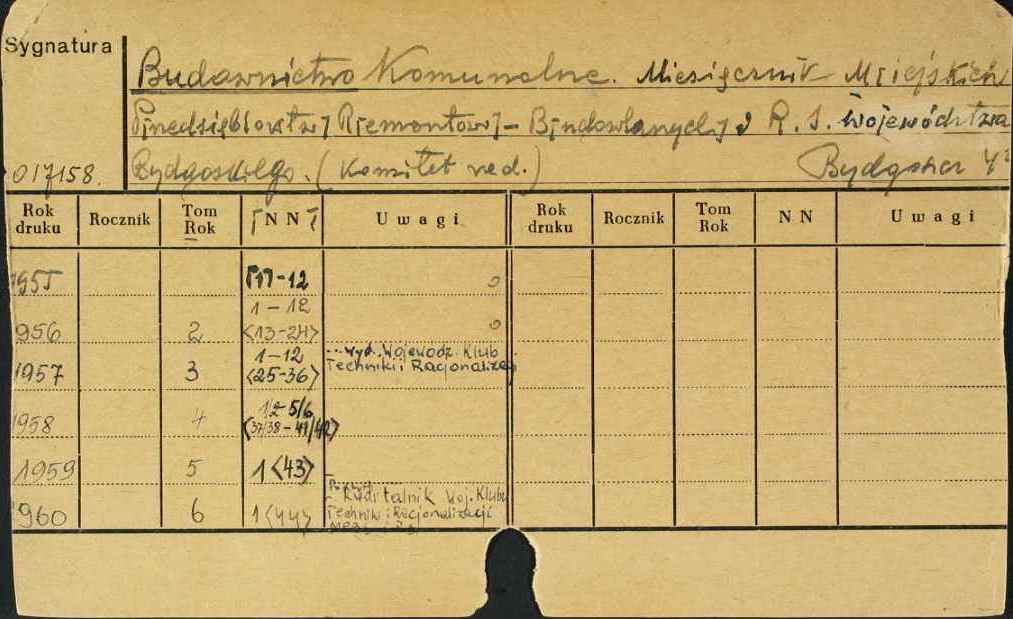 Sygnatura
Budownictwo Komunalne. Miesięcznik Miejskich
Przedsiębiorstw Remontowo-Budowlanych R. J. Województwa
017158. Bydgoskiego. (Komitet red.) Bydgoszcz 4°
Rok druku Rocznik Tom Rok NN Uwagi Rok druku Rocznik Tom Rok NN Uwagi
1955 -12
1-12
1956 2 <13-24>
1957 3 1-12 <25-36> ... wyd. Wojewódz. Klub
Techniki i Racjonalizacji
1958 4 1/2-5/6
<37/38-41/42>
1959 5 1 <43>
1960 6 1 <44> Woj. Klubu
Techniki i Racjonalizacji